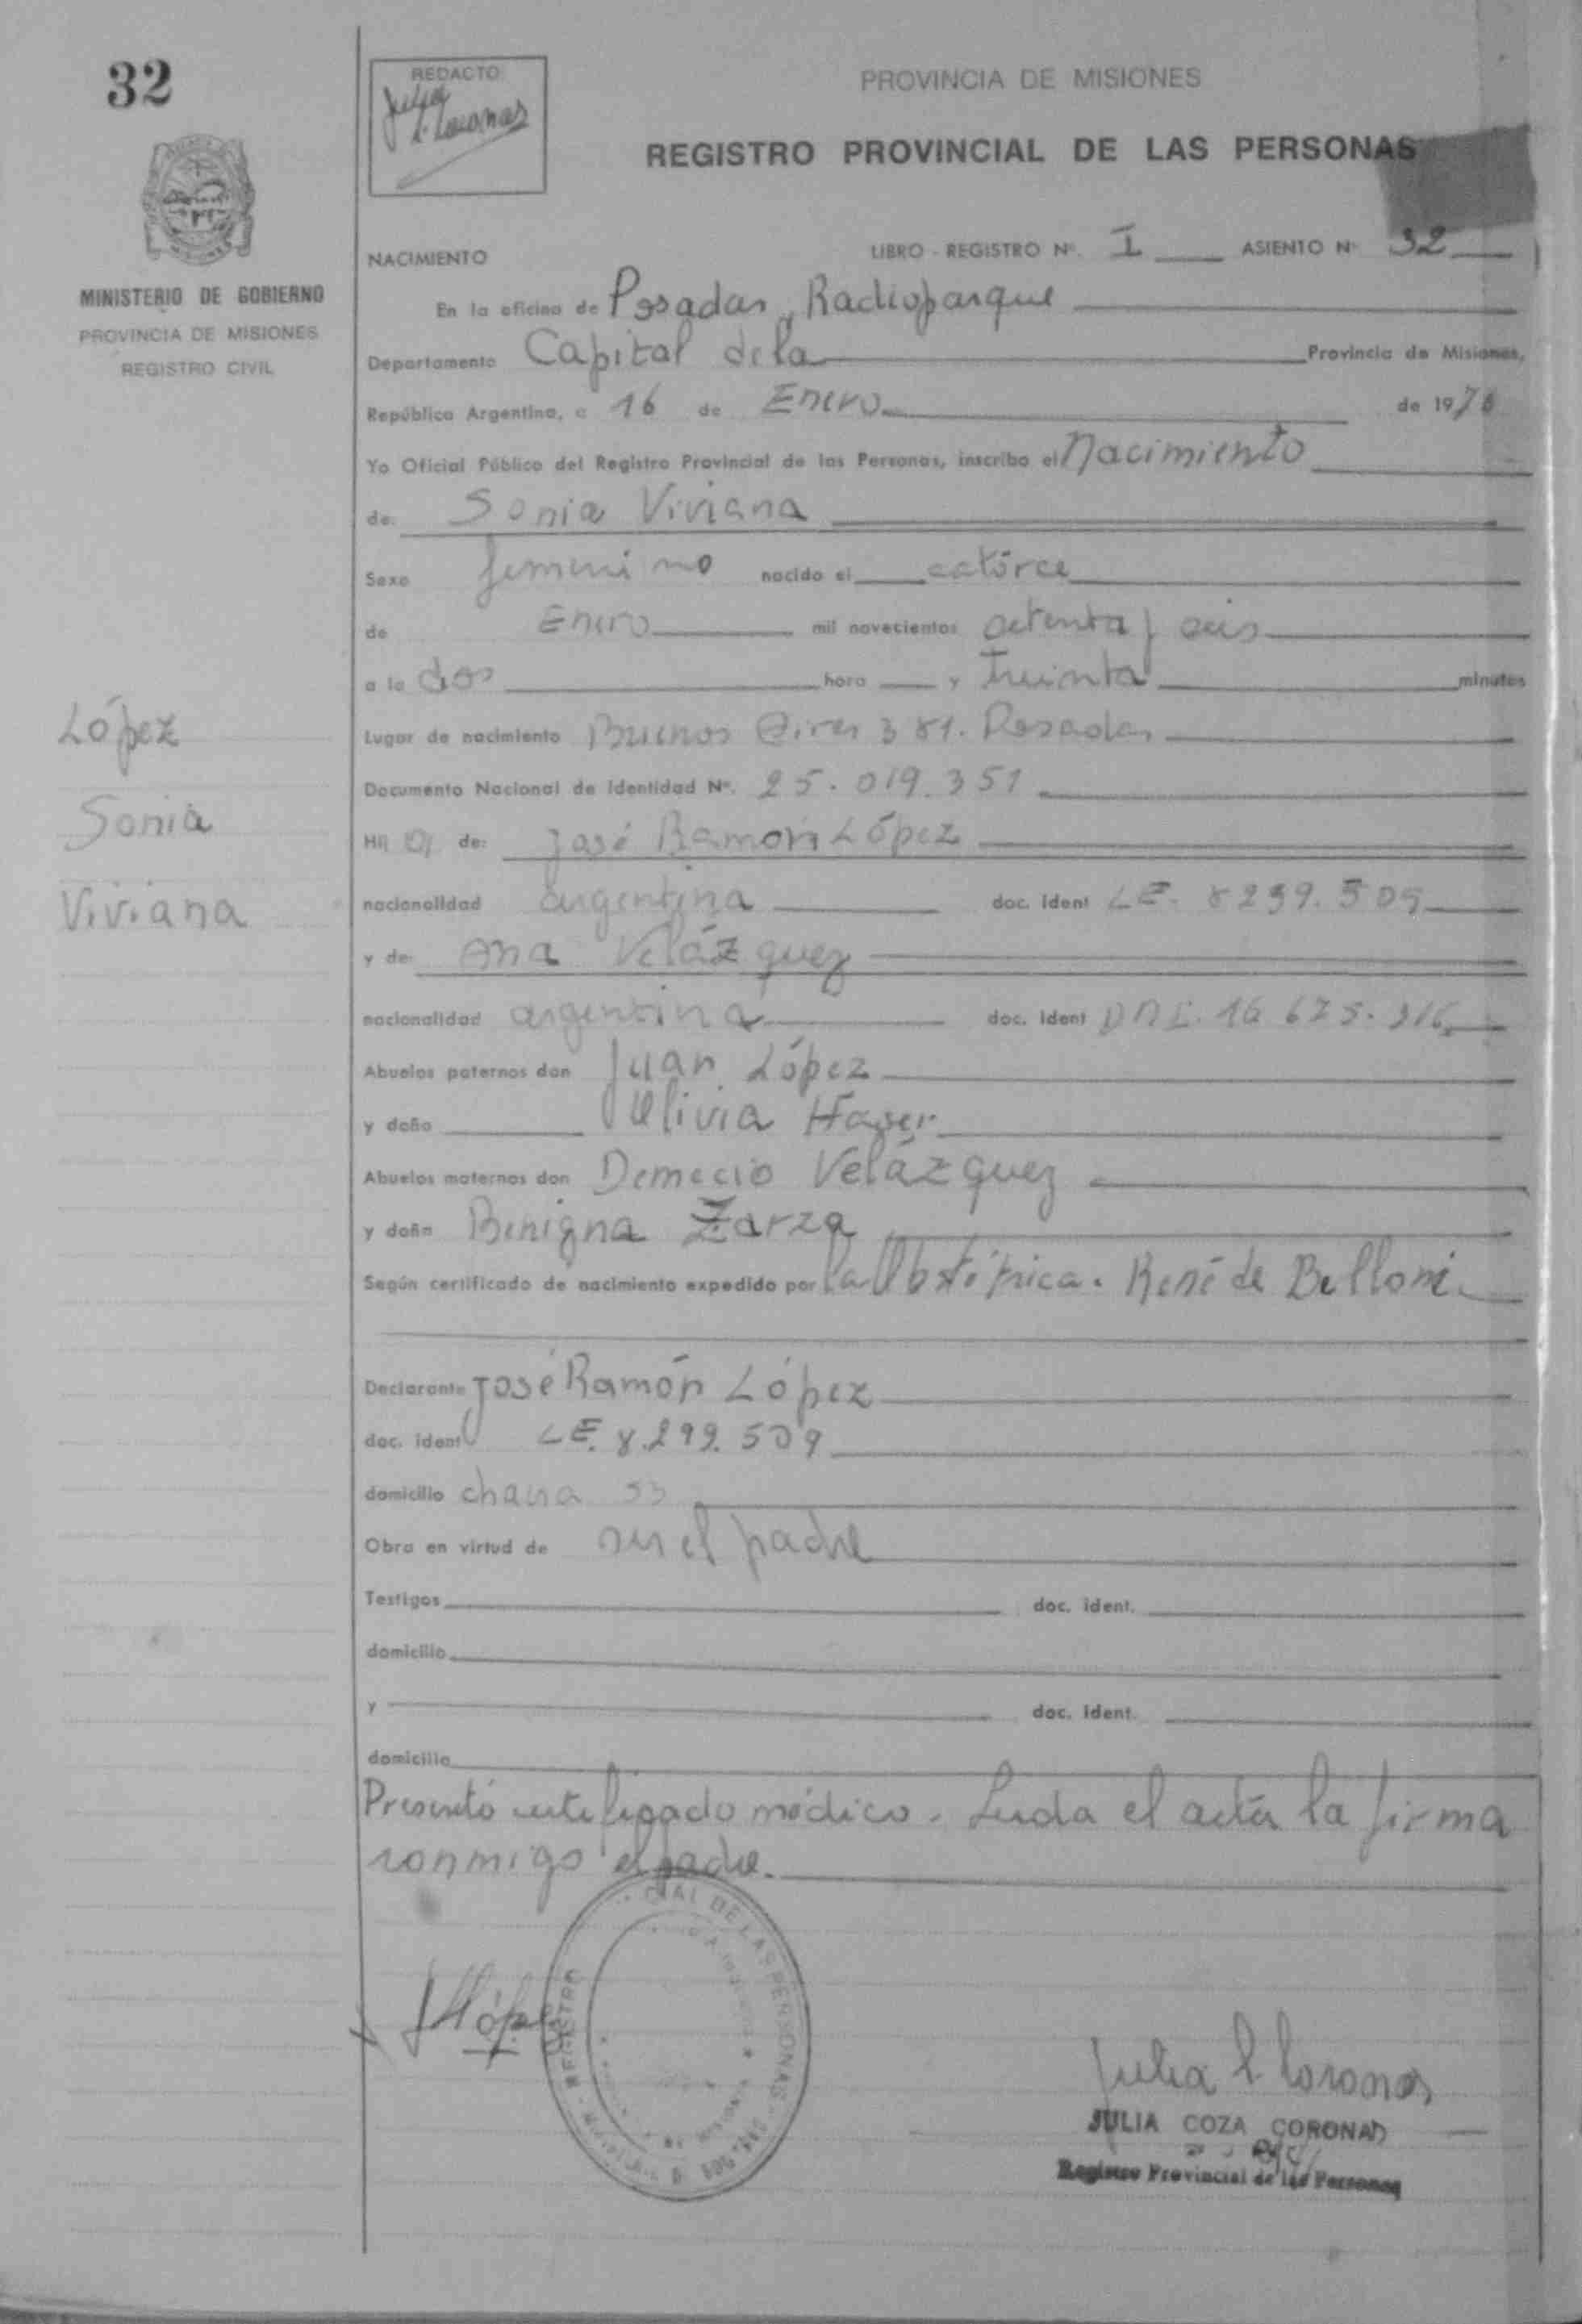 32
REDACTO
PROVINCIA DE MISIONES
REGISTRO PROVINCIAL DE LAS PERSONAS
MINISTERIO DE GOBIERNO
PROVINCIA DE MISIONES
REGISTRO CIVIL
NACIMIENTO LIBRO - REGISTRO Nº. I ASIENTO Nº 32
En la oficina de Posadas, Radioparque
Departamento Capital de la Provincia de Misiones,
República Argentina, a 16 de Enero de 1976
Yo Oficial Público del Registro Provincial de las Personas, inscribo el Nacimiento
de: Sonia Viviana
Sexo femenino nacido el catorce
de Enero mil novecientos setenta y seis
a la dos hora y Treinta minutos
Lugar de nacimiento Buenos Aires 381. Posadas
Documento Nacional de Identidad Nº. 25.019.351
Hij a de: José Ramón López
López
Sonia
Viviana
nacionalidad argentina doc. ident LE.
y de Ana Velázquez
nacionalidad argentina doc. ident DNI.
Abuelos paternos don Juan López
y doña
Abuelos maternos don Demecio Velázquez
y doña Benigna Zarza
Según certificado de nacimiento expedido por la Obstétrica. René de Belloni
Declarante José Ramón López
doc. ident LE. 8.299.509
domicilio
Obra en virtud de ser el padre
Testigos doc. ident.
domicilio
y doc. ident.
domicilio
Presentó certificado médico. Leída el acta la firma
conmigo el padre.
JULIA COZA CORONAD
Registro Provincial de las Personas